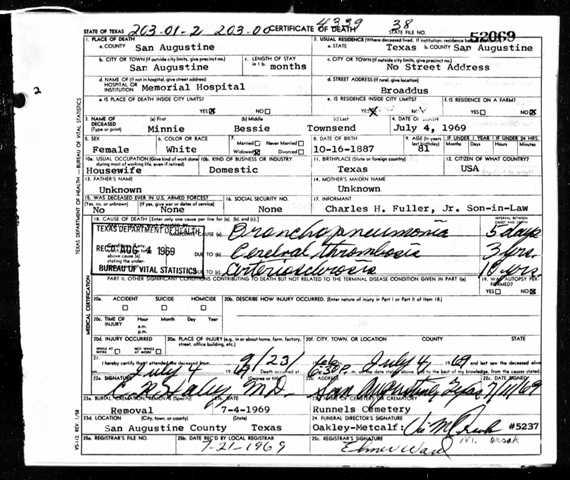 4339 38
STATE OF TEXAS 203-01-2 203.00 CERTIFICATE OF DEATH STATE FILE NO. 52069
1. PLACE OF DEATH 2. USUAL RESIDENCE (Where deceased lived. If institution: residence
a. COUNTY San Augustine a. STATE Texas b. COUNTY San Augustine
b. CITY OR TOWN (If outside city limits, give precinct no.) c. LENGTH OF STAY c. CITY OR TOWN (If outside city limits, give precinct no.)
San Augustine months No Street Address
d. NAME OF (If not in hospital, give street address) d. STREET ADDRESS (If rural, give location)
HOSPITAL OR INSTITUTION Memorial Hospital Broaddus
e. IS PLACE OF DEATH INSIDE CITY LIMITS? e. IS RESIDENCE INSIDE CITY LIMITS? f. IS RESIDENCE ON A FARM?
YES NO YES NO
3. NAME OF DECEASED (Type or print) (a) First (b) Middle (c) Last 4. DATE OF DEATH
Minnie Bessie Townsend July 4, 1969
5. SEX 6. COLOR OR RACE 7. Married Never Married 8. DATE OF BIRTH 9. AGE IF UNDER 1 YEAR IF UNDER 24 HRS.
Female White Widowed Divorced 10-16-1887 81
10a. USUAL OCCUPATION (Give kind of work done 10b. KIND OF BUSINESS OR INDUSTRY 11. BIRTHPLACE (State or foreign country) 12. CITIZEN OF WHAT COUNTRY?
during most of working life, even if retired)
Housewife Domestic Texas USA
13. FATHER'S NAME 14. MOTHER'S MAIDEN NAME
Unknown Unknown
15. WAS DECEASED EVER IN U.S. ARMED FORCES? 16. SOCIAL SECURITY NO. 17. INFORMANT
(Yes, no, or unknown) (If yes, give war or dates of service)
No None None Charles H. Fuller, Jr. Son-in-Law
18. CAUSE OF DEATH (Enter only one cause per line for (a), (b), and (c).)
TEXAS DEPARTMENT OF HEALTH (a) Bronchopneumonia 5 days
REC'D AUG 4 1969 DUE TO Cerebral thrombosis 3 yrs.
BUREAU OF VITAL STATISTICS DUE TO Arteriosclerosis
PART II. OTHER SIGNIFICANT CONDITIONS CONTRIBUTING TO DEATH BUT NOT RELATED TO THE TERMINAL DISEASE CONDITION GIVEN IN PART 19. WAS AUTOPSY PERFORMED?
YES NO
20a. ACCIDENT SUICIDE HOMICIDE 20b. DESCRIBE HOW INJURY OCCURRED. (Enter nature of injury in Part I or Part II of item 18.)
20c. TIME OF INJURY Hour Month Day Year
a.m.
p.m.
20d. INJURY OCCURRED 20e. PLACE OF INJURY (e.g., in or about home, farm, factory, street, office building, etc.) 20f. CITY, TOWN, OR LOCATION COUNTY STATE
21. I hereby certify that I attended the deceased from 9/23/ July 4, 69 and last saw the deceased alive
July 4 Death occurred at 6:30P.
22a. SIGNATURE M.D. 22b. ADDRESS San Augustine, Texas 22c. DATE SIGNED 7/11/69
23a. BURIAL, CREMATION, REMOVAL (Specify) 23b. DATE 23c. NAME OF CEMETERY OR CREMATORY
Removal 7-4-1969 Runnels Cemetery
23d. LOCATION (City, town, or county) (State) 24. FUNERAL DIRECTOR'S SIGNATURE
San Augustine County Texas Oakley-Metcalf: #5237
25a. REGISTRAR'S FILE NO. 25b. DATE REC'D BY LOCAL REGISTRAR 25c. REGISTRAR'S SIGNATURE
7-21-1969
TEXAS DEPARTMENT OF HEALTH — BUREAU OF VITAL STATISTICS
MEDICAL CERTIFICATION
2